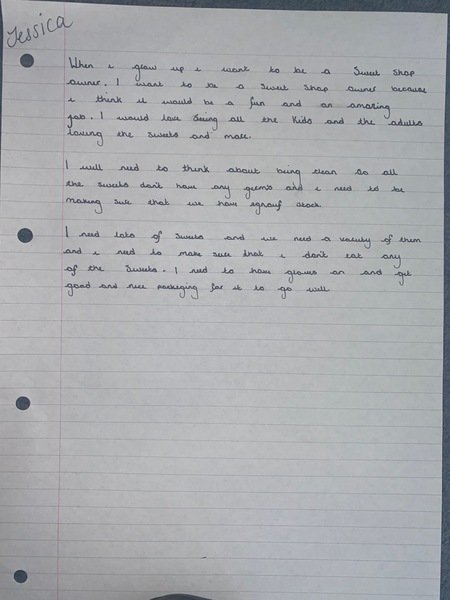 Jessica
When i grow up i want to be a Sweet Shop
owner. I want to be a Sweet Shop owner because
i think it would be a fun and an amazing
job. I would love Seeing all the Kids and the adults
loving the sweets and more.
I will need to think about being clean So all
the sweets don't have any germs and i need to be
making sure that we have stock.
I need lots of Sweets and we need a of them
and i need to make sure that i don't eat any
of the Sweets. I need to have gloves on and get
good and nice packeging for it to go well